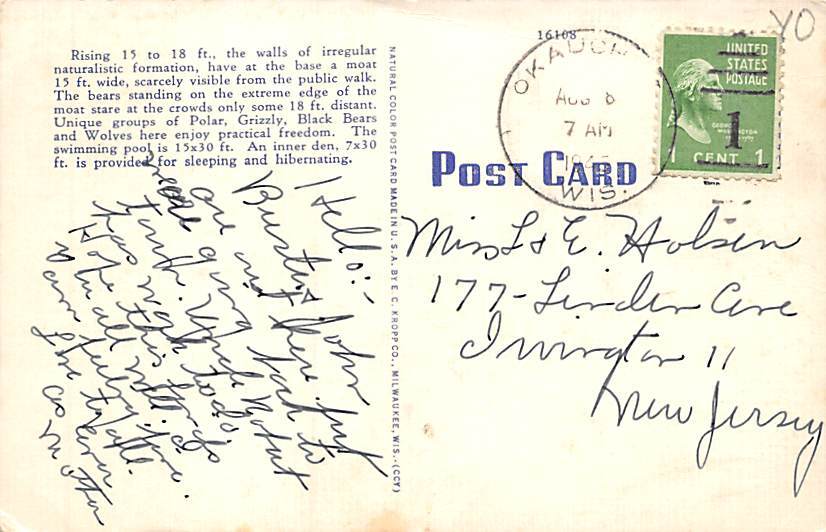 Rising 15 to 18 ft., the walls of irregular
naturalistic formation, have at the base a moat
15 ft. wide, scarcely visible from the public walk.
The bears standing on the extreme edge of the
moat stare at the crowds only some 18 ft. distant.
Unique groups of Polar, Grizzly, Black Bears
and Wolves here enjoy practical freedom. The
swimming pool is 15x30 ft. An inner den, 7x30
ft. is provided for sleeping and hibernating.
Hello:-
Buster & John
are out here just
are going back to
town. Uncle
has work to do.
Hope this finds
you all well. I
am feeling fine.
Love to all.
as ever
NATURAL COLOR POST CARD MADE IN U. S. A. BY E. C. KROPP CO., MILWAUKEE, WIS. (CCY)
16108
POST CARD
AUG 8
7 AM
WIS.
UNITED
STATES
POSTAGE
1
GEORGE
WASHINGTON
CENT 1
YO
Miss L & E. Holsen
177-Linden Ave
Irvington 11
New Jersey